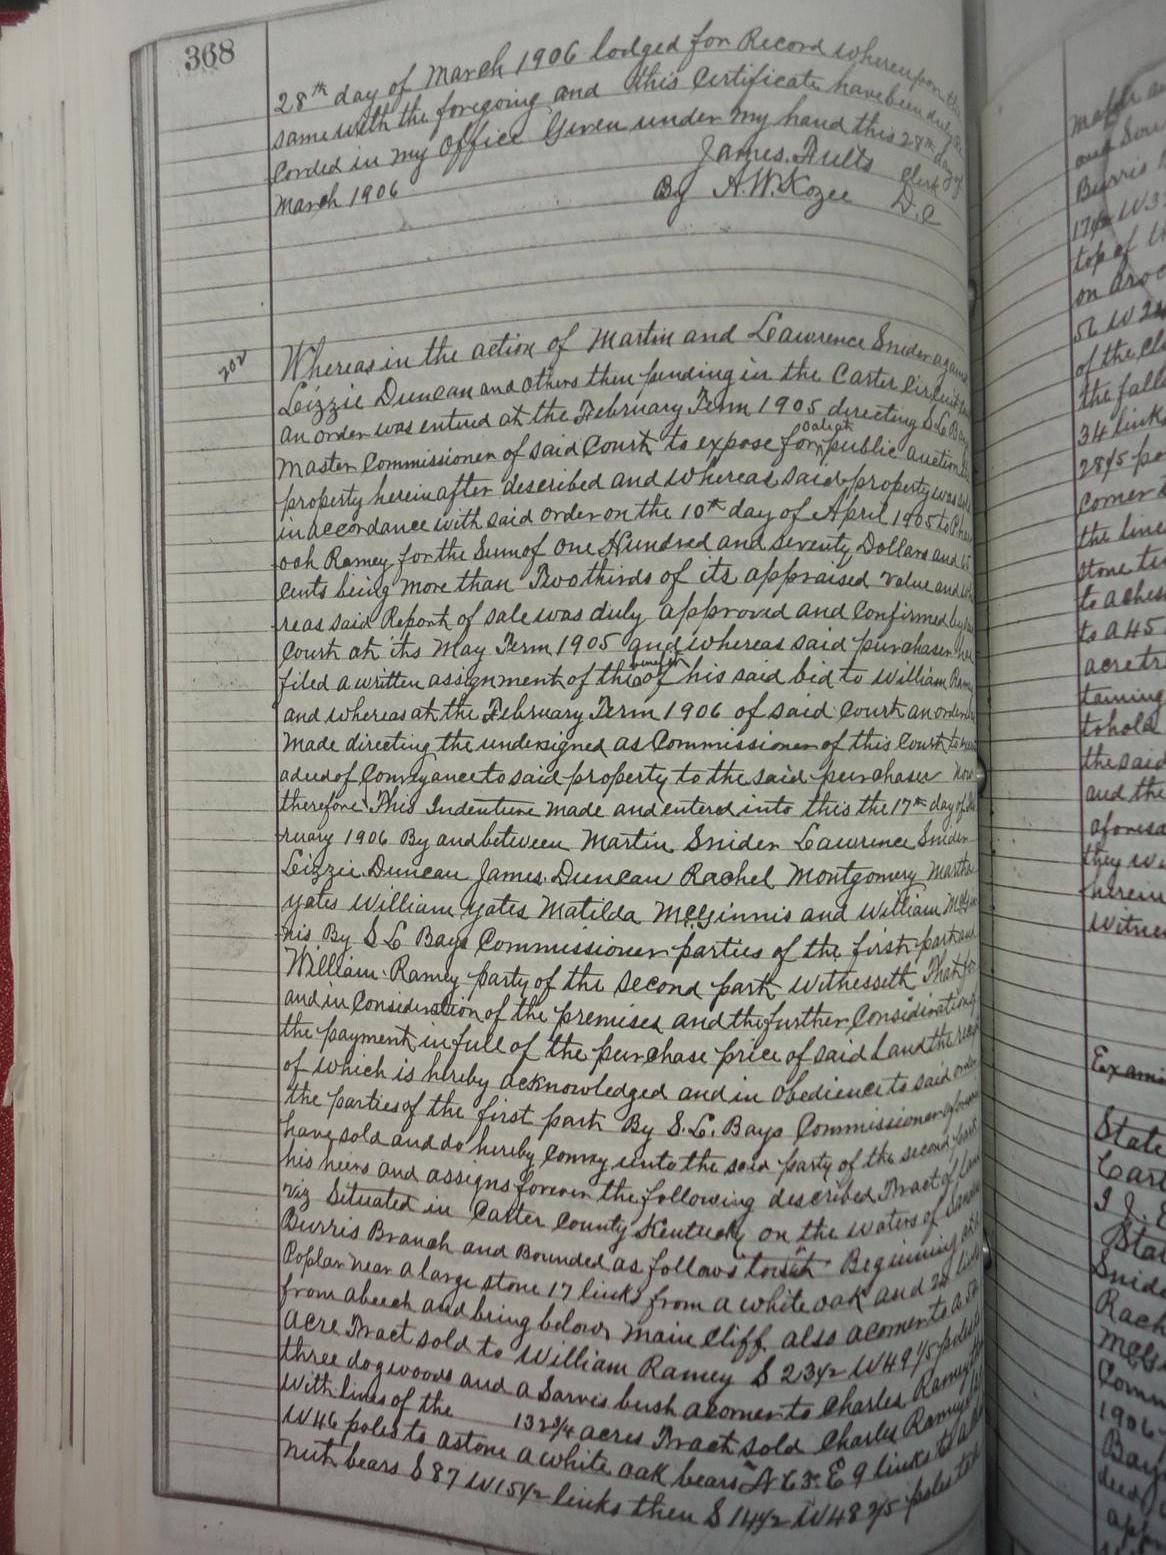 368
28th day of March 1906 lodged for Record whereupon the
same with the foregoing and this Certificate have been duly Re
corded in my Office Given under my hand this 28th day of
March 1906 James Fults Clerk
By A.W. Kozee D.C
202
Whereas in the action of Martin and Lawrence Snider against
Lizzie Duncan and others then pending in the Carter Circuit
an order was entered at the February Term 1905 directing S L Bays
Master Commissioner of said Court to expose for sale at public auction
property herein after described and whereas said property was sold
in accordance with said order on the 10th day of April 1905 to
oah Ramey for the Sum of One Hundred and seventy Dollars and 65
Cents being more than Two thirds of its appraised value and whe
reas said Report of sale was duly approved and Confirmed by
Court at its May Term 1905 and whereas said purchaser has
filed a written assignment of the of his said bid to William Ramey
and whereas at the February Term 1906 of said Court an order
made directing the undersigned as Commissioner of this Court to
a deed of Conveyance to said property to the said purchaser Now
therefore This Indenture made and entered into this the 17th day of
ruary 1906 By and between Martin Snider Lawrence Snider
Lizzie Duncan James Duncan Rachel Montgomery Martha
Yates William Yates Matilda McGinnis and William McGin
nis By S L Bays Commissioner parties of the first part and
William Ramey party of the second part Witnesseth That for
and in Consideration of the premises and the further Consideration of
the payment in full of the purchase price of said Land the receipt
of which is hereby acknowledged and in Obedience to said order
the parties of the first part By S.L. Bays Commissioner aforesaid
have sold and do hereby Convey unto the said party of the second part
his heirs and assigns forever the following described Tract of Land
viz Situated in Carter County Kentucky on the waters of
Burris Branch and Bounded as follows towit Beginning at a
Poplar near a large stone 17 links from a white oak and 20 links
from a beech and being below main Cliff also a corner to a 50
acre Tract sold to William Ramey S 23½ W 49 1/5 poles to
three dogwoods and a Sarvis bush a corner to Charles Ramey
With lines of the 132¾ acres Tract sold Charles Ramey
W 46 poles to a stone a white oak bears N 63 E 9 links to a
nut bears S 87 W 15½ links then S 14½ W 48 2/5 poles to
and Sou
Burris
17½ W 3
top of th
on a roc
56 W 24
of the Cli
the fall
34 links
28 4/5 po
corner
the line
stone
to a ches
to a 45
acre tr
taining
to hold
the said
and the
aforesa
they w
herein
Witne
Exami
State
Cart
I J.
Sta
Snid
Rach
McG
Comm
1906
Bay
deed
app